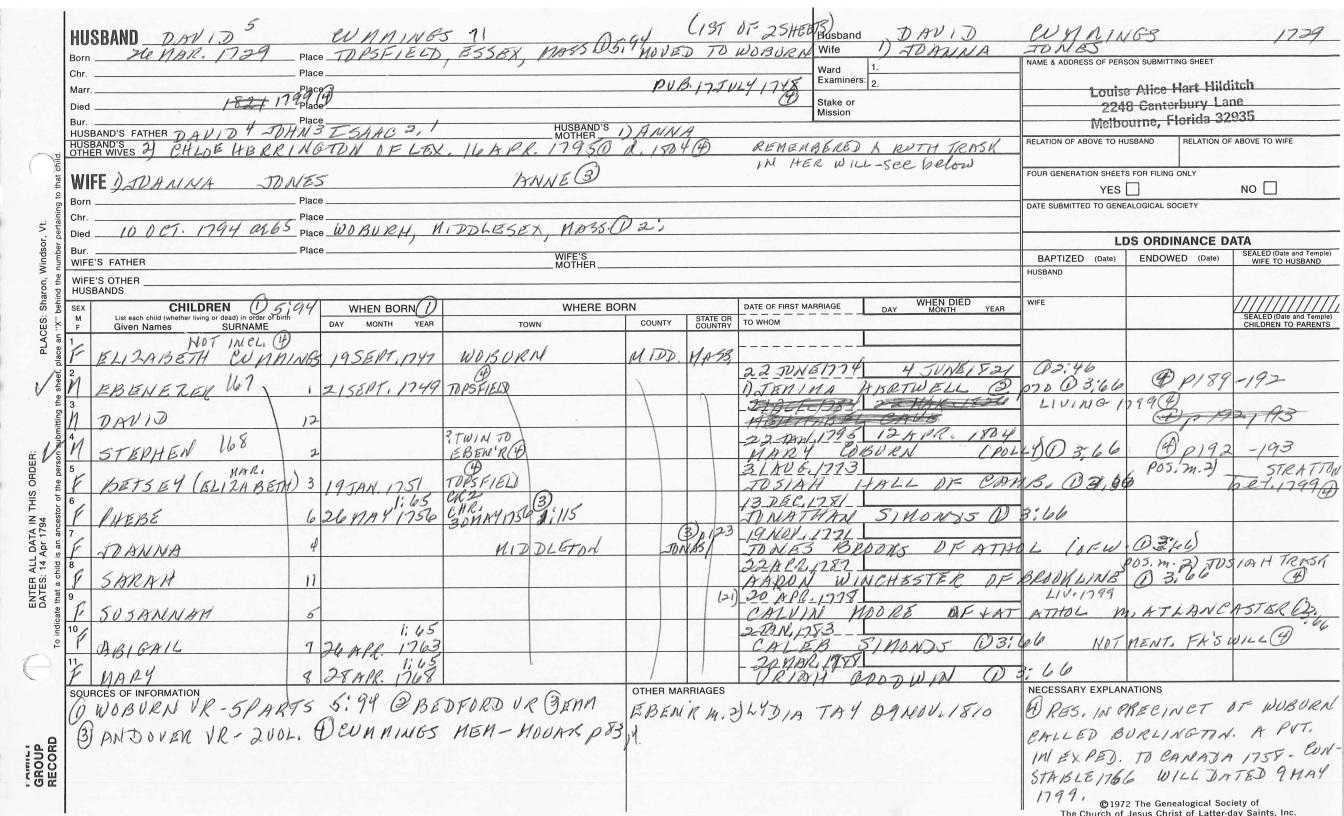 (1ST OF 2 SHEETS)
HUSBAND DAVID 5 CUMMINGS 71
Born 26 MAR. 1729 Place TOPSFIELD, ESSEX, MASS ① 5:94 MOVED TO WOBURN
Chr. Place
Marr. Place PUB. 17 JULY 1748 ④
Died 1821 1799 ④ Place
Bur. Place
HUSBAND'S FATHER DAVID 4 JOHN 3 ISAAC 2, 1 HUSBAND'S MOTHER 1) ANNA
HUSBAND'S OTHER WIVES 2) CHLOE HERRINGTON OF LEX. 16 APR. 1795 ① d. 1804 ④ REMEMBERED A RUTH TRASK
IN HER WILL-see below
WIFE 1) JOANNA JONES ANNE ③
Born Place
Chr. Place
Died 10 OCT. 1794 ae 65 Place WOBURN, MIDDLESEX, MASS ① 2:
Bur. Place
WIFE'S FATHER WIFE'S MOTHER
WIFE'S OTHER HUSBANDS
Husband DAVID CUMMINGS 1729
Wife 1) JOANNA JONES
Ward Examiners: 1.
2.
Stake or Mission
NAME & ADDRESS OF PERSON SUBMITTING SHEET
Louise Alice Hart Hilditch
2248 Canterbury Lane
Melbourne, Florida 32935
RELATION OF ABOVE TO HUSBAND RELATION OF ABOVE TO WIFE
FOUR GENERATION SHEETS FOR FILING ONLY
YES NO
DATE SUBMITTED TO GENEALOGICAL SOCIETY
LDS ORDINANCE DATA
BAPTIZED (Date) ENDOWED (Date) SEALED (Date and Temple) WIFE TO HUSBAND
HUSBAND
WIFE
SEALED (Date and Temple) CHILDREN TO PARENTS
SEX M F CHILDREN ① 5:94 WHEN BORN ① WHERE BORN DATE OF FIRST MARRIAGE WHEN DIED
List each child (whether living or dead) in order of birth
Given Names SURNAME DAY MONTH YEAR TOWN COUNTY STATE OR COUNTRY TO WHOM DAY MONTH YEAR
NOT INCL. ④
1 F ELIZABETH CUMMINGS 19 SEPT. 1747 WOBURN MIDD MASS
22 JUNE 1774 4 JUNE 1821 ① 2:46
2 M EBENEZER 167 1 21 SEPT. 1749 ④ TOPSFIELD 1) JEMIMA HARTWELL ② ① 3:66 ④ p189-192
3 M DAVID 12 LIVING 1799 ④ ④ p192,193
22 JAN. 1795 12 APR. 1804
4 M STEPHEN 168 2 ? TWIN TO EBEN'R ④ MARY COBURN (POLLY) ① 3:66 ④ p192-193
3 AUG. 1773 POS. m. 2) STRATTON
5 F BETSEY (ELIZABETH) MAR. 3 19 JAN. 1751 ④ TOPSFIELD JOSIAH HALL OF CAMB. ① 1799 ④
13 DEC. 1781
6 F PHEBE 6 26 MAY 1756 1:65 CR2 CHR. 30 MAY 1756 ③ 1:115 JONATHAN SIMONDS ① 3:66
19 NOV. 1771
7 F JOANNA 4 MIDDLETON ③ p123 JONES JONES BROOKS OF ATHOL
22 APR. 1787 POS. m. 2) JOSIAH TRASK ④
8 F SARAH 11 AARON WINCHESTER OF BROOKLINE ① 3:66
LIV. 1799
(21) 20 APR. 1778
9 F SUSANNAH 5 CALVIN MOORE OF & AT ATHOL m. AT LANCASTER
2 JAN. 1783
10 F ABIGAIL 7 26 APR. 1763 1:65 CALEB SIMONDS ① 3:66 NOT MENT. FA'S WILL ④
20 MAR. 1788
11 F MARY 8 28 APR. 1768 1:65 URIAH GOODWIN ① 3:66
SOURCES OF INFORMATION
① WOBURN VR-5 PARTS 5:94 ② BEDFORD VR ③
③ ANDOVER VR-2 VOL. ④ CUMMINGS MEM-MOOAR p83,
OTHER MARRIAGES
EBEN'R m. 2) LYDIA TAY 29 NOV. 1810
NECESSARY EXPLANATIONS
④ RES. IN PRECINCT OF WOBURN
CALLED BURLINGTON. A PVT.
IN EXPED. TO CANADA 1758- CON-
STABLE 1766 WILL DATED 9 MAY
1799.
©1972 The Genealogical Society of
The Church of Jesus Christ of Latter-day Saints, Inc.
PLACES: Sharon, Windsor, Vt.
ENTER ALL DATA IN THIS ORDER:
DATES: 14 Apr 1794
To indicate that a child is an ancestor of the person submitting the sheet, place an "X" behind the number pertaining to that child.
FAMILY GROUP RECORD